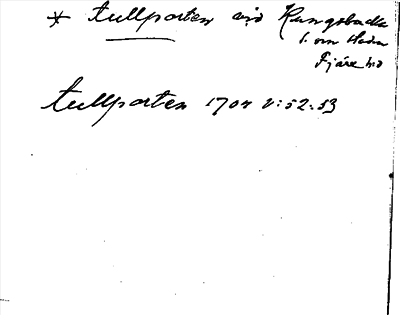 * tullporten vid Kungsbacka
i. om Hedn
Fjäre hd
tullporten 1704 v:52.53